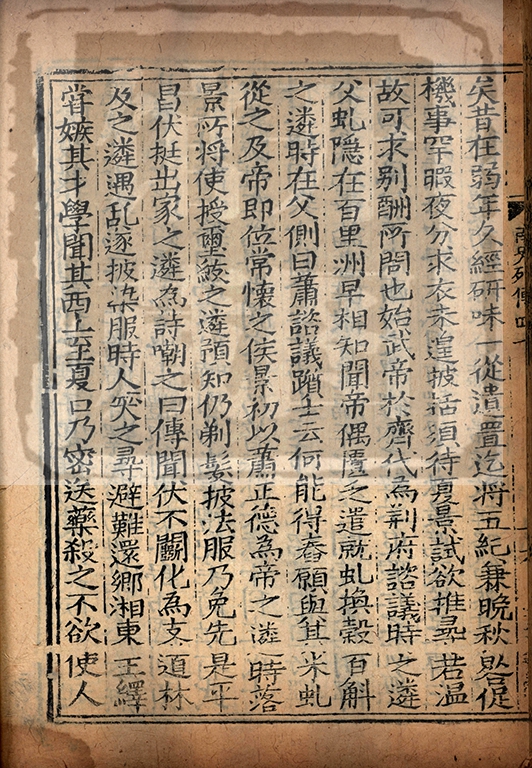 矣昔在弱年久經研味一從遺置迄將五紀兼晚秋晷促
機事罕暇夜分求衣未遑披括須待夏景試欲推尋若温
故可求别酬所問也始武帝於齊代為荆府諮議時之遴
父虬隱在百里洲早相知聞帝偶匱乏遣就虬換穀百斛
之遴時在父側曰蕭諮議躓士云何能得舂願與其米虬
從之及帝即位常懷之侯景初以蕭正德為帝之遴時落
景所將使授璽紱之遴預知仍剃髮披法服乃免先是平
昌伏挺出家之遴為詩嘲之曰傳聞伏不鬬化為支道林
及之遴遇乱逐披染服時人笑之尋避難還鄉湘東王繹
甞嫉其才學聞其西上至夏口乃宻送藥殺之不欲使人